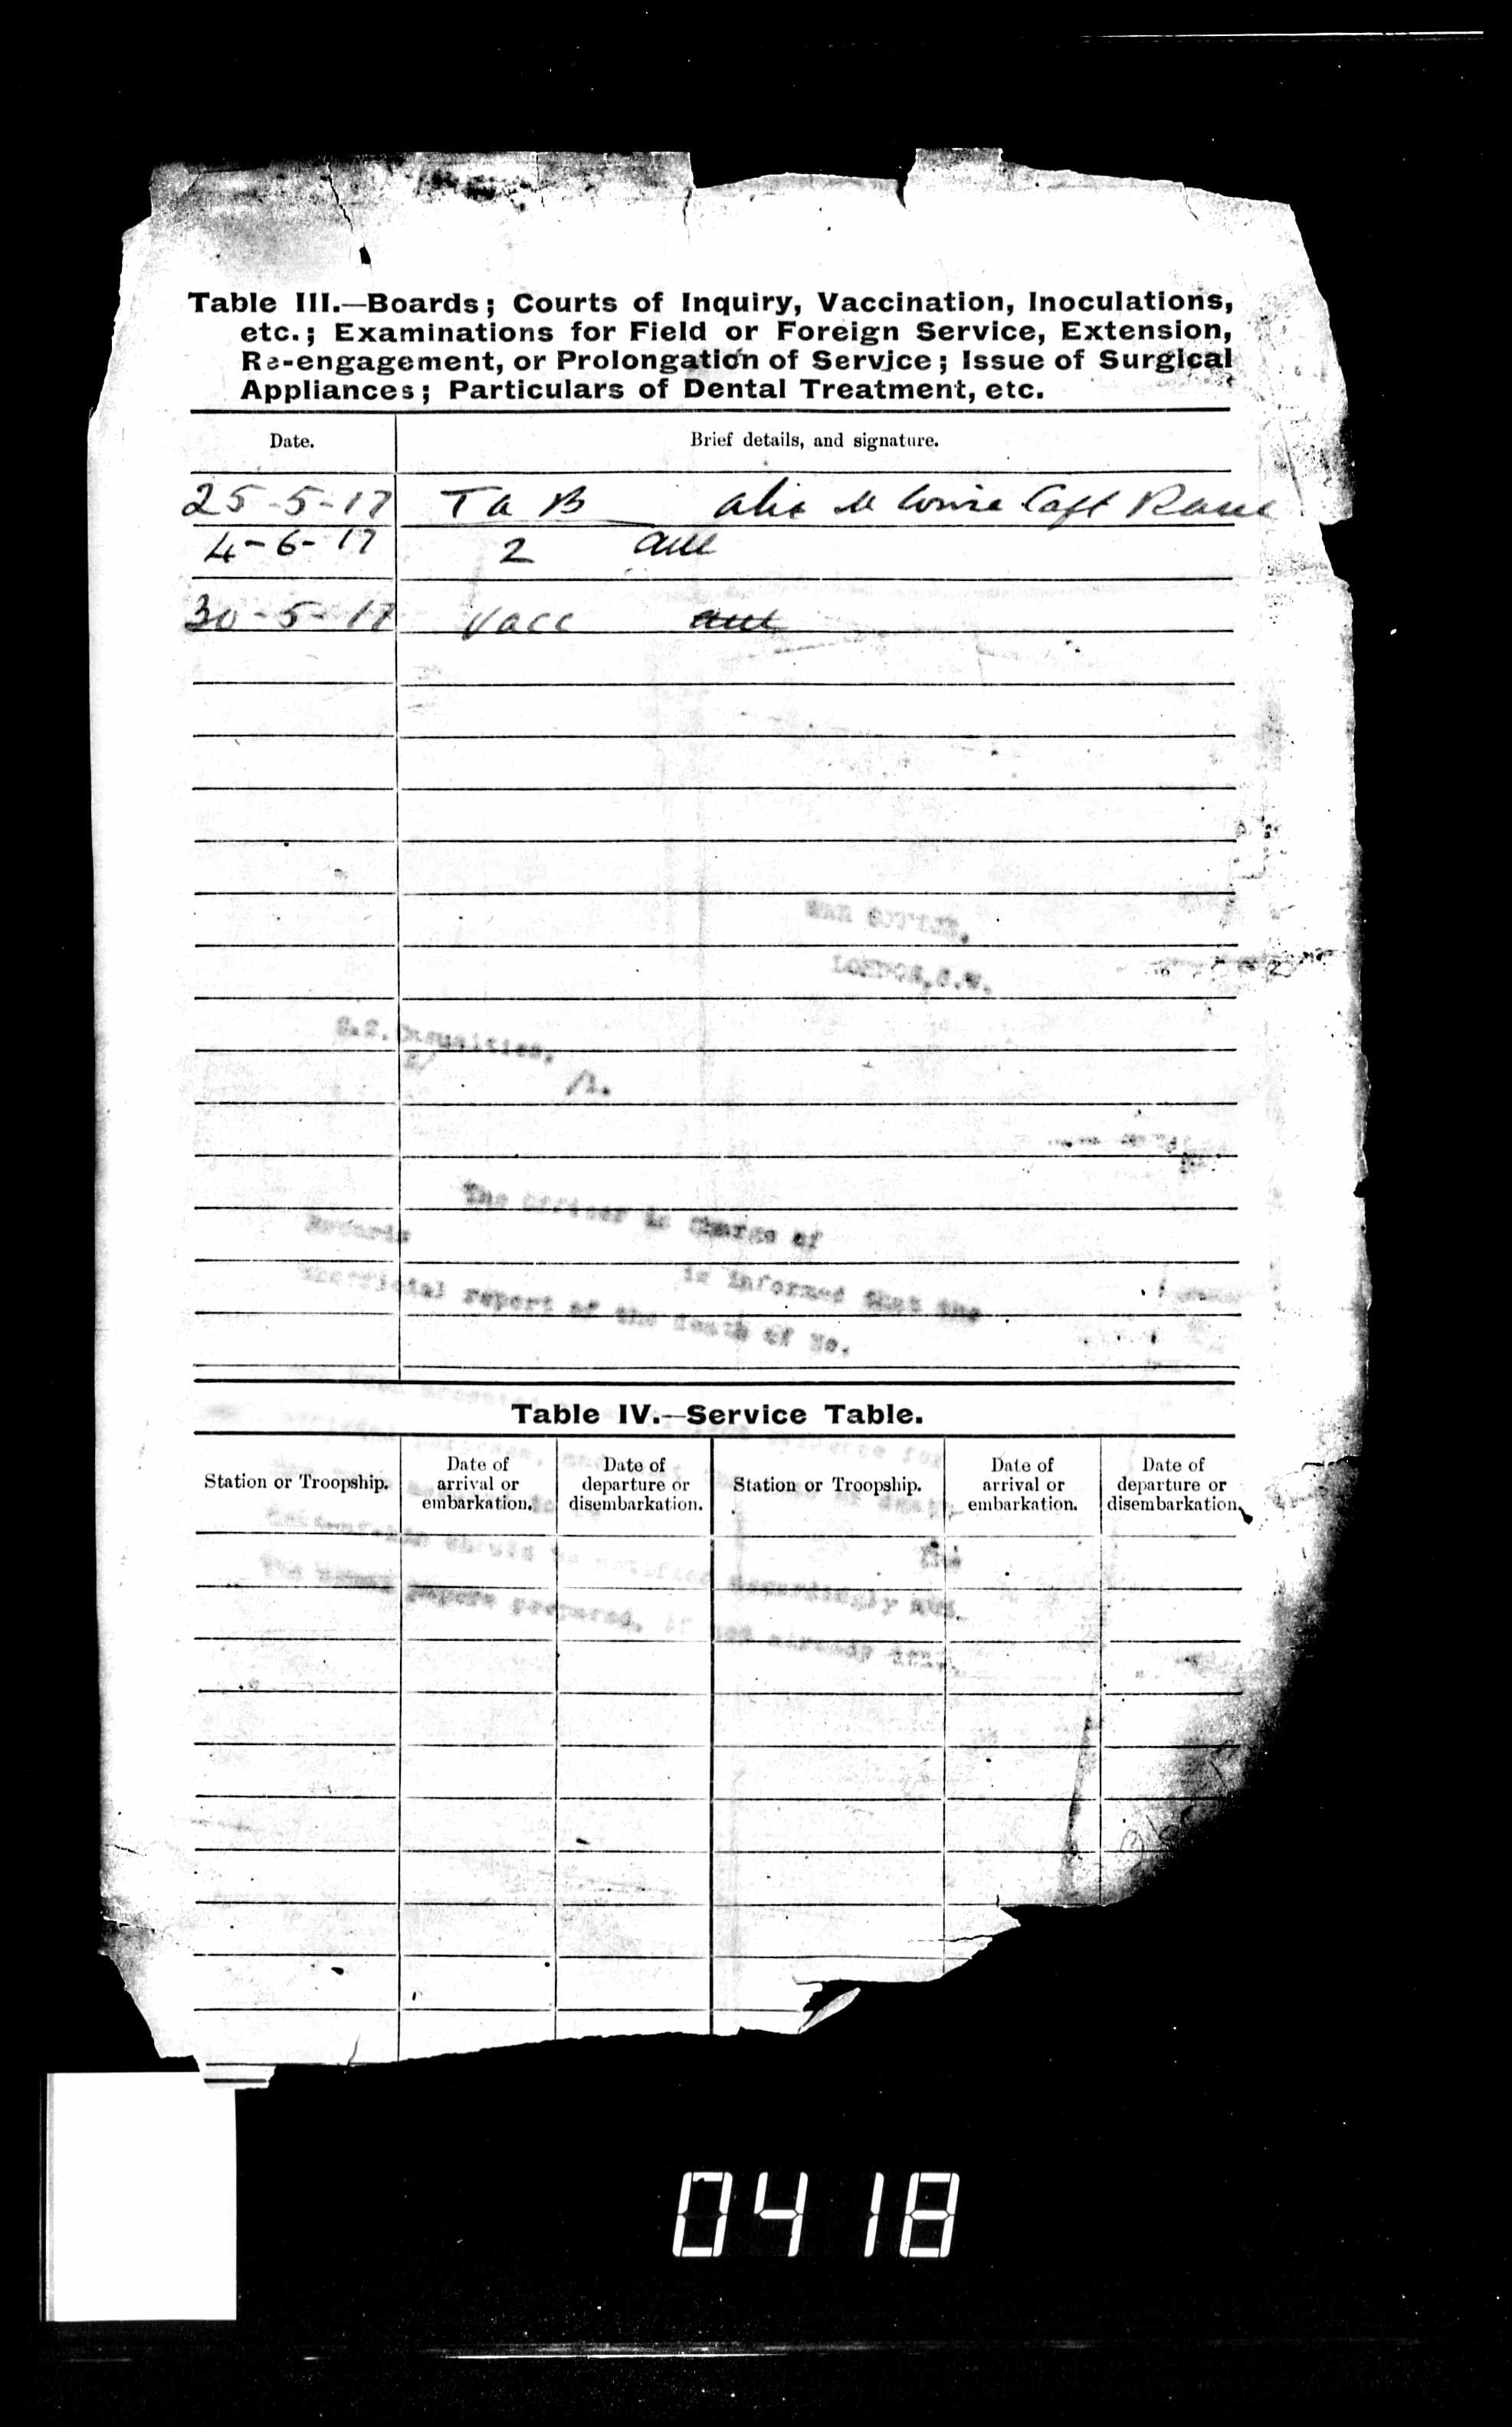 Table III.—Boards; Courts of Inquiry, Vaccination, Inoculations,
etc.; Examinations for Field or Foreign Service, Extension,
Re-engagement, or Prolongation of Service; Issue of Surgical
Appliances; Particulars of Dental Treatment, etc.
Date. Brief details, and signature.
25-5-17 T a B Capt
4-6-17 2
30-5-17 Vacc
WAR OFFICE,
LONDON, S.W.
Casualties,
/1.
The Officer in Charge of
Records
is informed that the
report of the death of No.
Table IV.—Service Table.
Station or Troopship. Date of arrival or embarkation. Date of departure or disembarkation. Station or Troopship. Date of arrival or embarkation. Date of departure or disembarkation.
should be notified accordingly and
papers prepared, if not already
0418